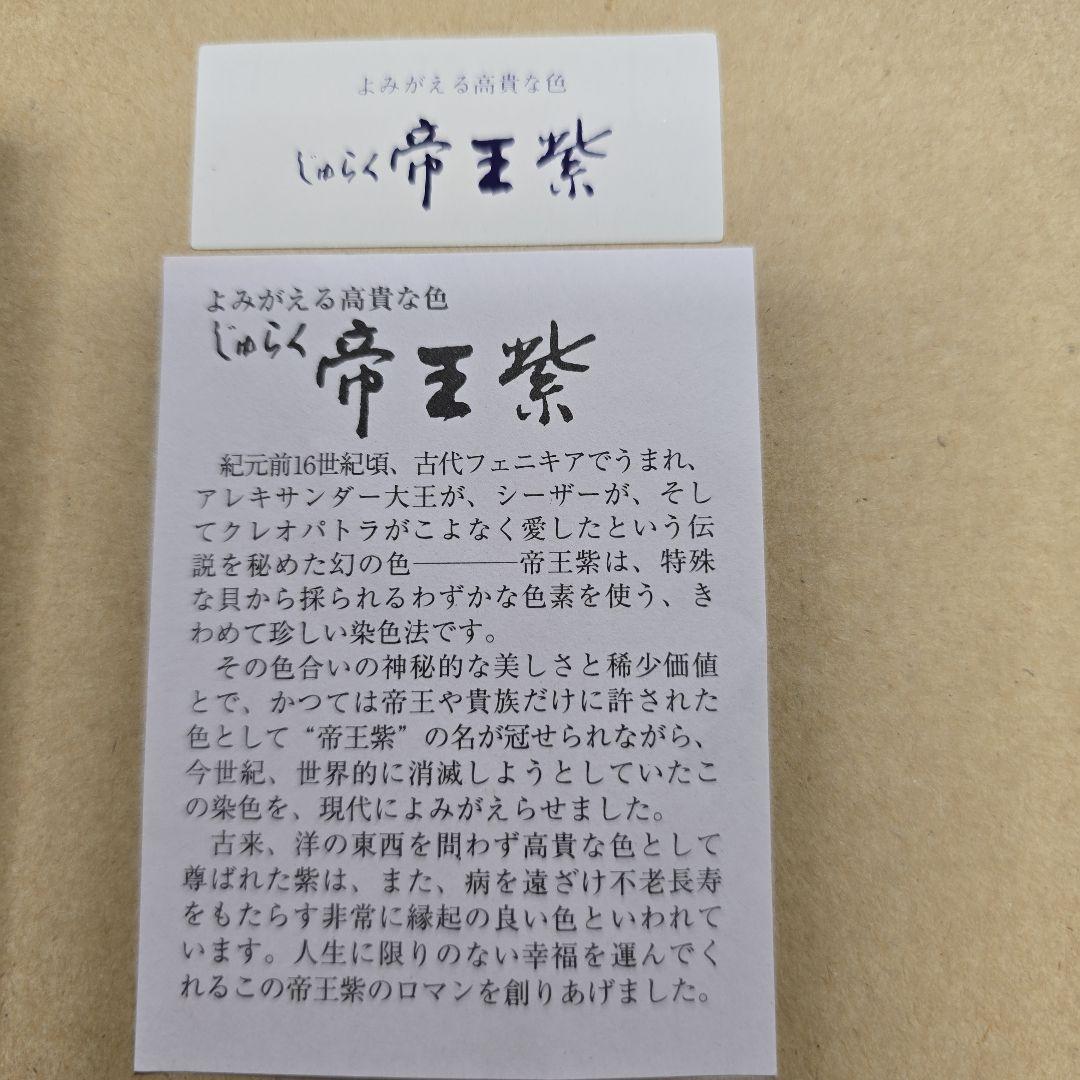 よみがえる高貴な色
じゅらく帝王紫
よみがえる高貴な色
じゅらく帝王紫
紀元前16世紀頃、古代フェニキアでうまれ、
アレキサンダー大王が、シーザーが、そし
てクレオパトラがこよなく愛したという伝
説を秘めた幻の色————帝王紫は、特殊
な貝から採られるわずかな色素を使う、き
わめて珍しい染色法です。
その色合いの神秘的な美しさと稀少価値
とで、かつては帝王や貴族だけに許された
色として“帝王紫”の名が冠せられながら、
今世紀、世界的に消滅しようとしていたこ
の染色を、現代によみがえらせました。
古来、洋の東西を問わず高貴な色として
尊ばれた紫は、また、病を遠ざけ不老長寿
をもたらす非常に縁起の良い色といわれて
います。人生に限りのない幸福を運んでく
れるこの帝王紫のロマンを創りあげました。